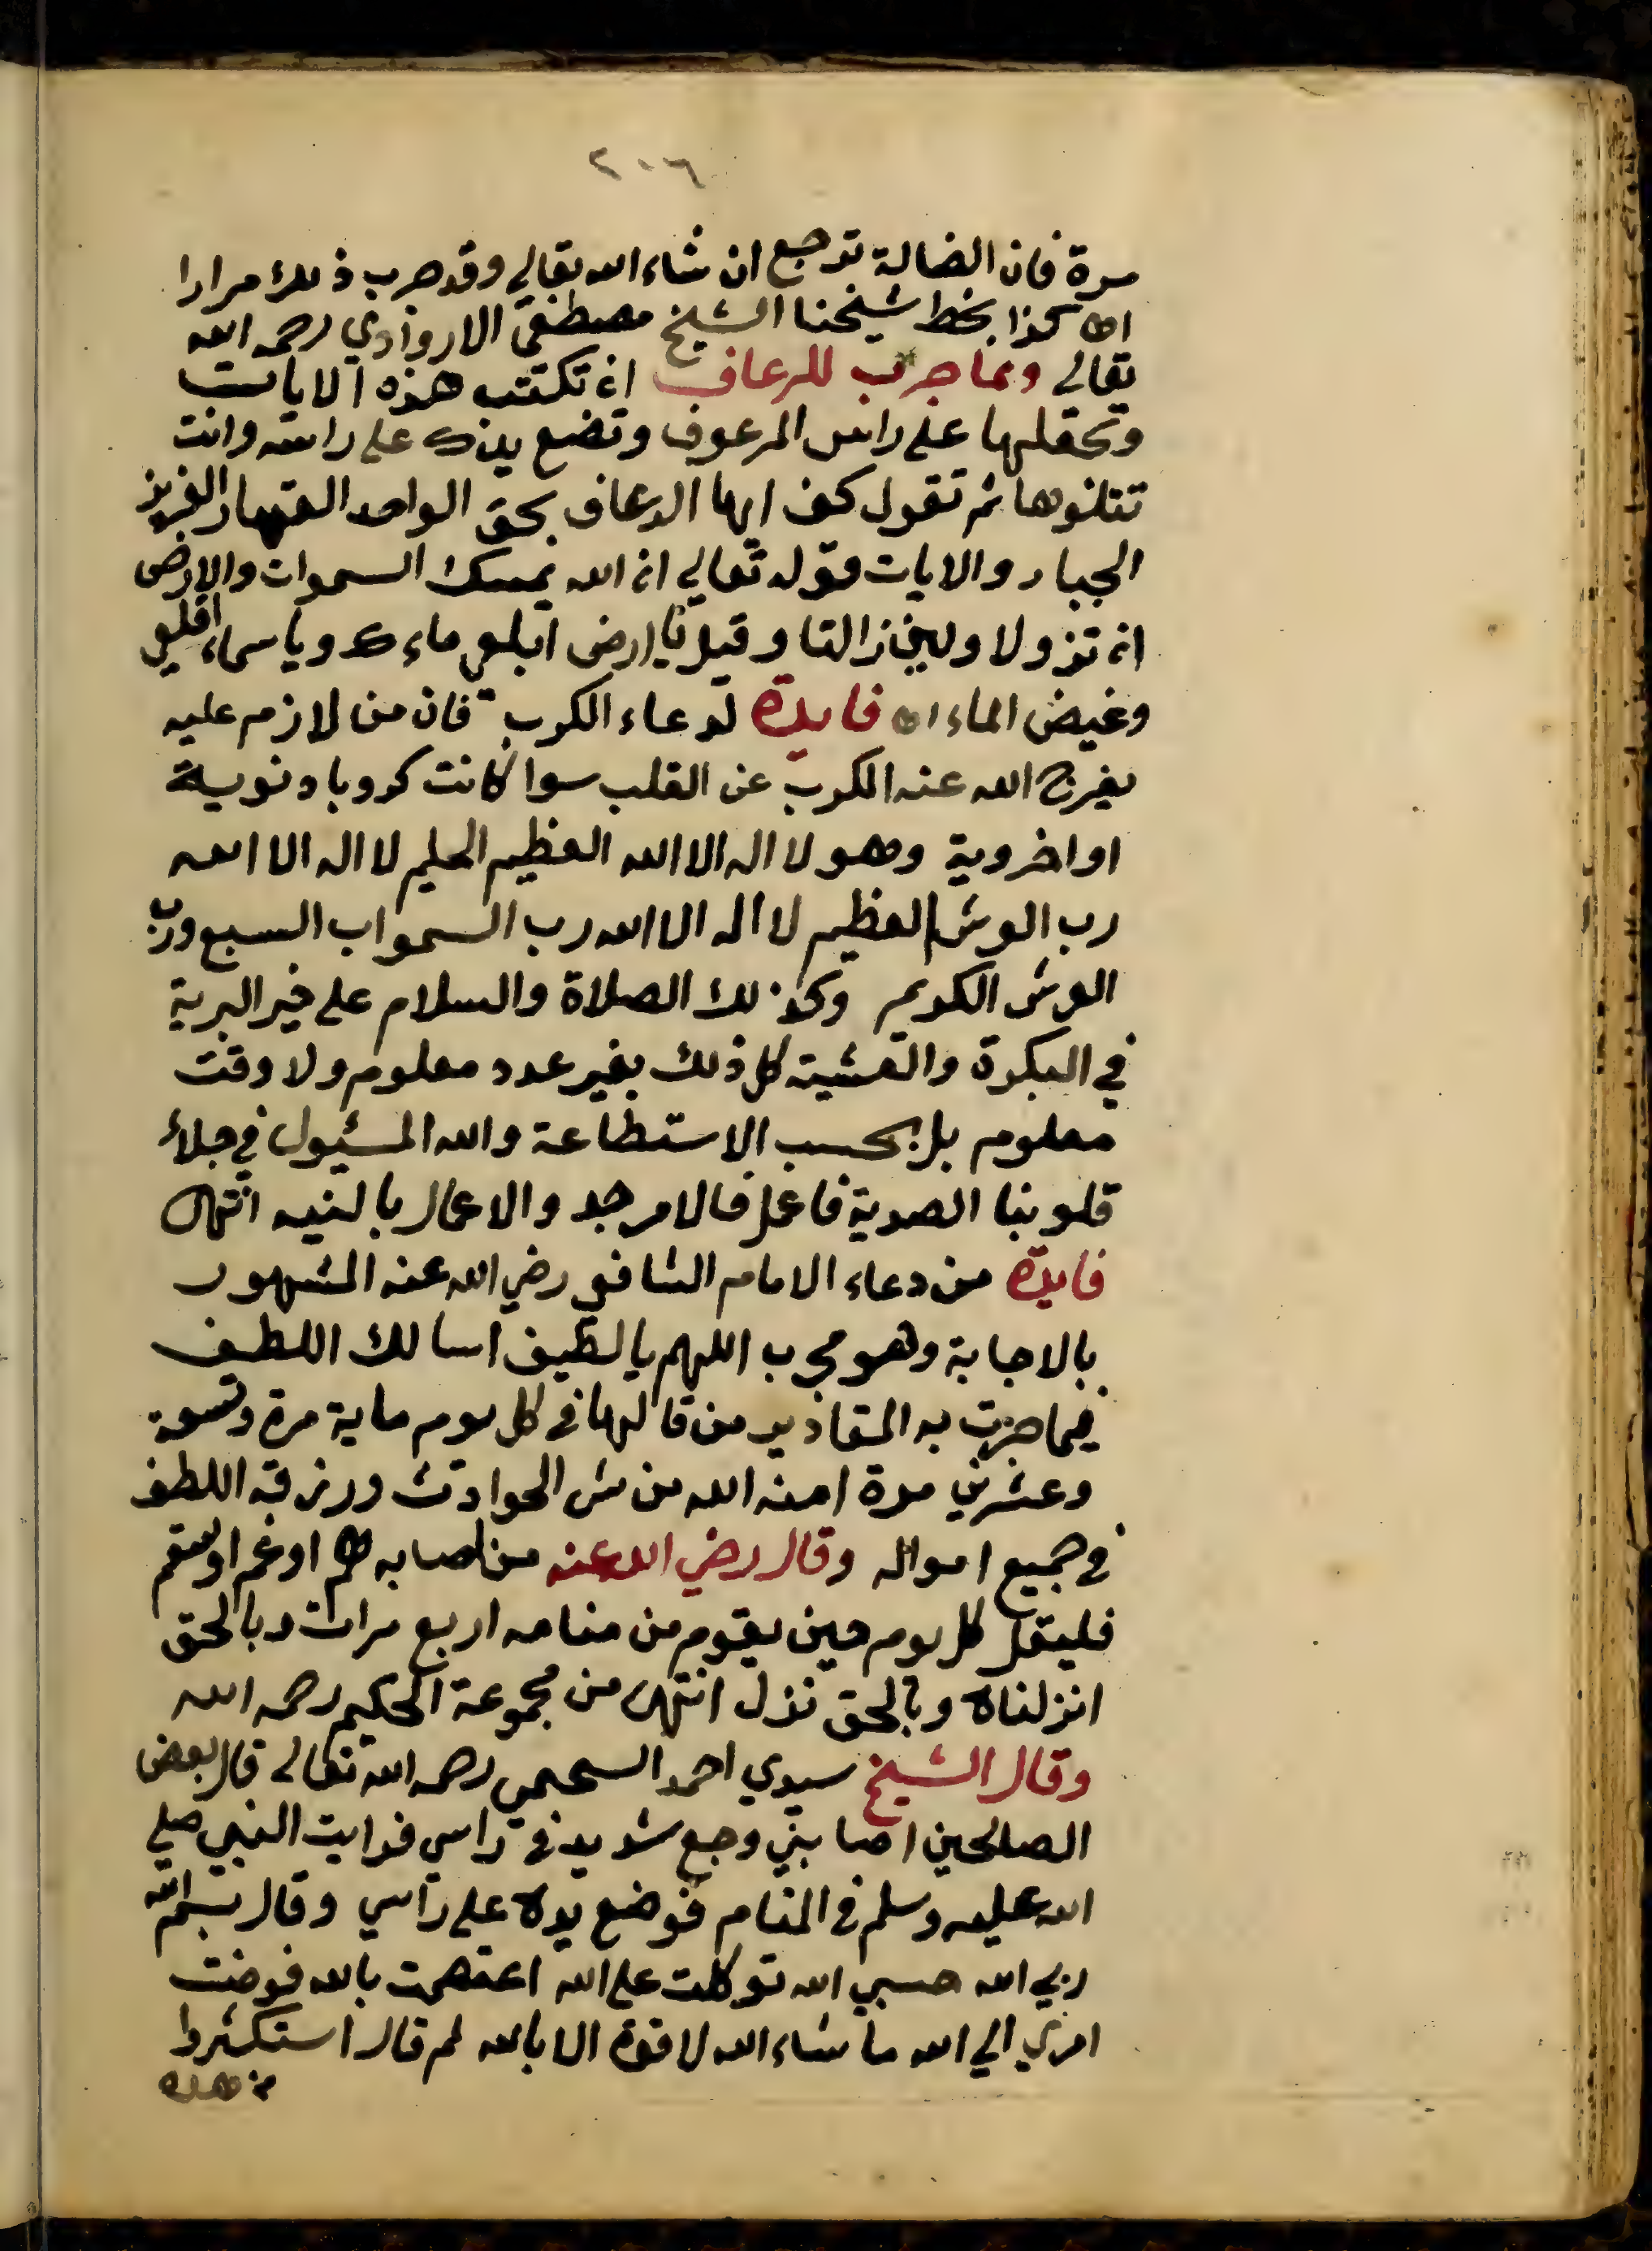 ٢٠٦
مرة فان الضالة ترجع ان شاء الله تعالي وقد جرب ذلك مرارا
اه كذا بخط شيخنا الشيخ مصطفى رحمه الله
تعالى ومما جرب للرعاف ان تكتب هذه الايات
وتجعلها على راس المرعوف وتضع يدك على راسه وانت
تتلوها ثم تقول كف ايها الرعاف بحق الواحد القهار العزيز
الجبار والايات قوله تعالي ان الله يمسك السموات والارض
ان تزولا ولين زالتا وقيل يا ارض ابلعي ماءك وياسماء اقلعي
وغيض الماء اه فايدة لدعاء الكرب فان من لازم عليه
يفرج الله عنه الكرب عن القلب سوا كانت كروبا دنوية
او اخروية وهو لا اله الا الله العظيم الحليم لا اله الا الله
رب العرش العظيم لا اله الا الله رب السموات السبع ورب
العرش الكريم وكذلك الصلاة والسلام على خير البرية
في البكرة والعشية كل ذلك بغير عدد معلوم ولا وقت
معلوم بل بحسب الاستطاعة والله المسئول في جلاء
قلوبنا الصدية فاعمل فالامر جد والاعمال بالنيه انتهى
فايدة من دعاء الامام الشافعي رضي الله عنه المشهور
بالاجابة وهو مجرب اللهم يا لطيف اسالك اللطف
فيما جرت به المقادير من قالها في كل يوم ماية مرة وتسعة
وعشرين مرة امنه الله من شر الحوادث ورزقه اللطف
في جميع احواله وقال رضي الله عنه من اصابه هم او غم او سقم
فليقل كل يوم حين يقوم من منامه اربع مرات وبالحق
انزلناه وبالحق نزل انتهى من مجموعة الحكيم رحمه الله
وقال الشيخ سيدي احمد السحيمي رحمه الله تعالى قال بعض
الصالحين اصابني وجع شديد في راسي فرايت النبي صلي
الله عليه وسلم في المنام فوضع يده على راسي وقال بسم الله
ربي الله حسبي الله توكلت على الله اعتصمت بالله فوضت
امري الي الله ما شاء الله لا قوة الا بالله ثم قال استكثروا
من هذه